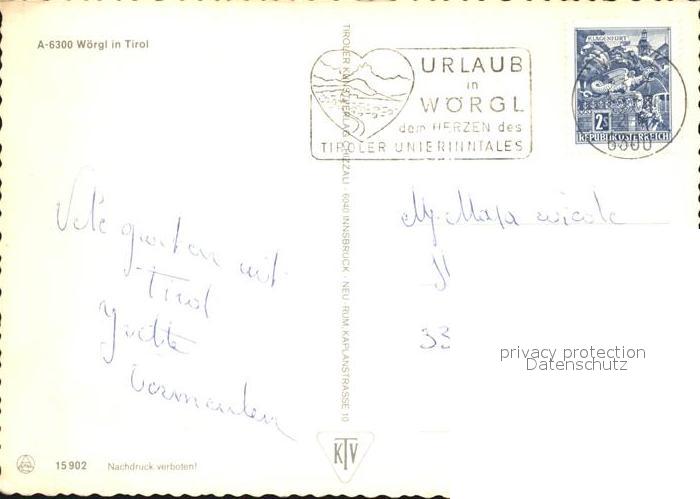 A-6300 Wörgl in Tirol
URLAUB
in
WÖRGL
dem HERZEN des
TIROLER UNTERINNTALES
KLAGENFURT
2S
REPUBLIK ÖSTERREICH
6300
TIROLER KUNSTVERLAG CHIZZALI · 6040 INNSBRUCK · NEU-RUM, KAPLANSTRASSE 10
Vele groeten uit
Tirol
Yvette
33
privacy protection
Datenschutz
KTV
15902 Nachdruck verboten!